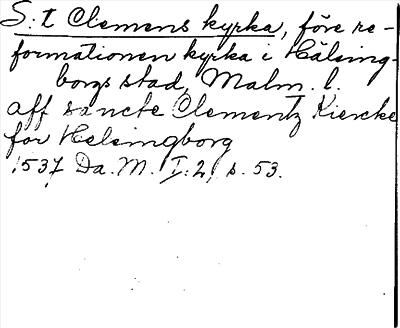 S:t Clemens kyrka, före re-
formationen kyrka i Hälsing-
borgs stad, Malm. l.
aff sancte Clementz Kiercke
for Helsingborg
1537 Da. M. I:2, s. 53.